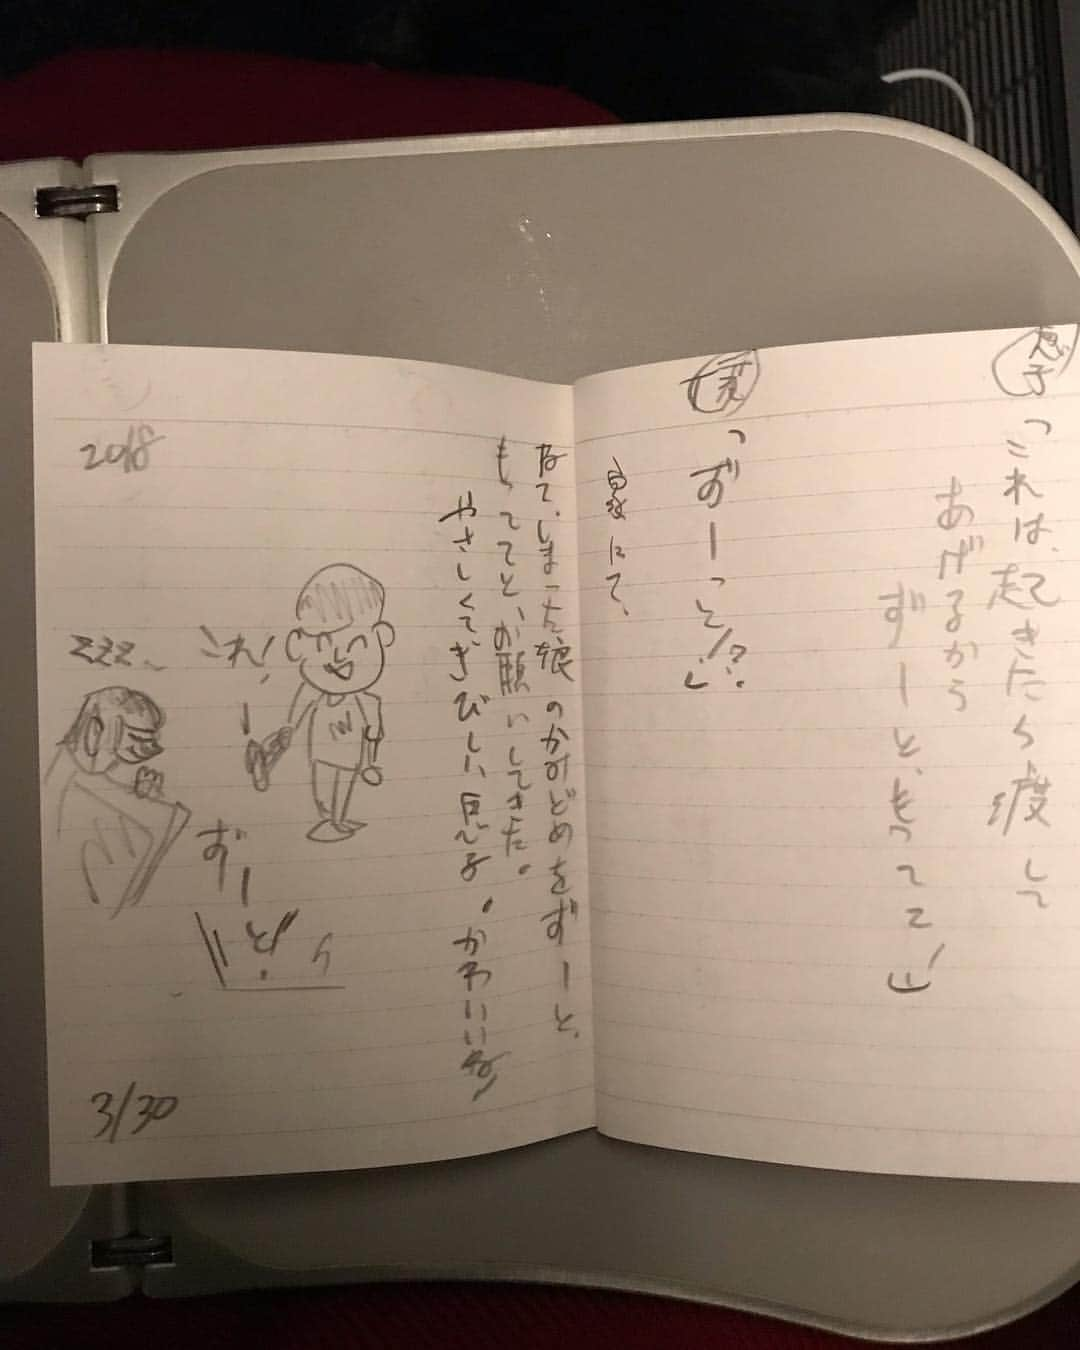 息子
「これは、起きたら渡して
あげるから
ずーと、もってて！」
「ずーっと!?」
にて、
ねてしまった娘のかみどめをずーと、
もっててと、お願いしてきた。
やさしくてきびしい息子。かわいいね
2018
これ！
zzz
ずー
と！
3/30